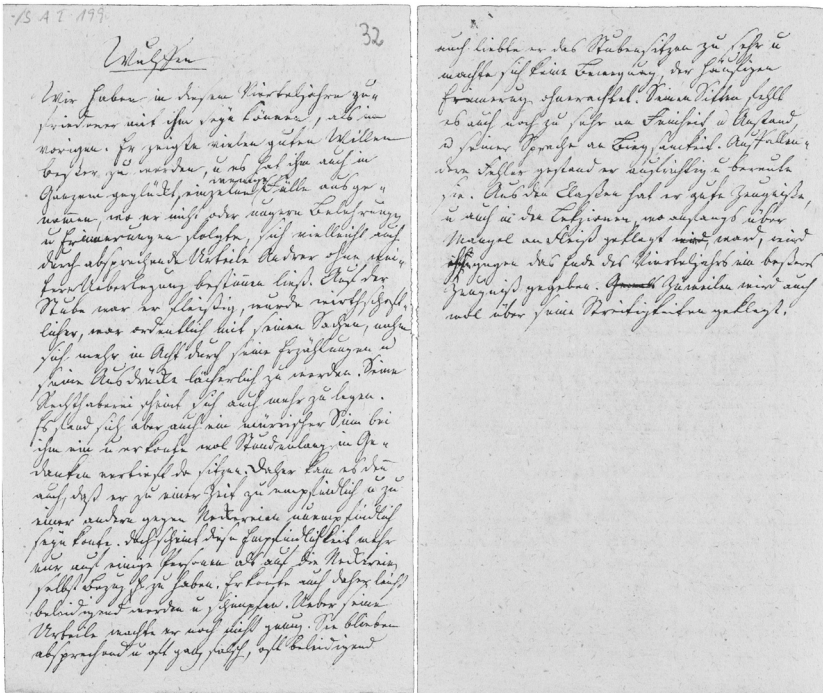 /S A I 199.
32
Wulffen
Wir haben in diesem Vierteljahre zu=
friedener mit ihm seyn können, als im
vorigen. Er zeigte vielen guten Willen
besser zu werden, u es hat ihm auch im
Ganzen geglückt, wenige einzelne Fälle ausge=
nomen, wo er nicht oder ungern Belehrungen
u Erinnerungen folgte, sich vielleicht auch
durch absprechende Urteile Andrer ohne wei=
tere Ueberlegung bestimen ließ. Auf der
Stube war er fleißig, wurde wirthschaft=
licher, war ordentlich mit seinen Sachen, nahm
sich mehr in Acht durch seine Erzählungen u
seine Ausdrücke lächerlich zu werden. Seine
Rechthaberei scheint sich auch mehr zu legen.
Es fand sich aber auch ein mürrischer Sinn bei
ihm ein u er konte wol Stundenlang in Ge=
danken vertieft da sitzen. Daher kam es den
auch, daß er zu einer Zeit zu empfindlich u zu
einer andern gegen Neckereien unempfindlich
seyn konte. Doch scheint diese Empfindlichkeit mehr
nur auf einige Personen als auf die Neckereien
selbst Bezug zu haben. Er konte auch daher leicht
beleidigend werden u schimpfen. Ueber seine
Urteile wachte er noch nicht genug. Sie blieben
absprechend u oft ganz falsch, oft beleidigend
auch liebte er das Stubensitzen zu sehr u
machte sich keine Bewegung, der häufigen
Erinnerung ohnerachtet. Seinen Sitten fehlt
es auch noch zu sehr an Feinheit u Anstand
u seiner Sprache an Biegsamkeit. Auffallen=
dere Fehler gestand er aufrichtig u bereute
sie. Aus den Classen hat er gute Zeugniße,
u auch in den Lektionen, wo anfangs über
Mangel an Fleiß geklagt ward, wird
gegen das Ende des Vierteljahrs ein beßeres
Zeugniß gegeben. Zuweilen wird auch
wol über seine Streitigkeiten geklagt.